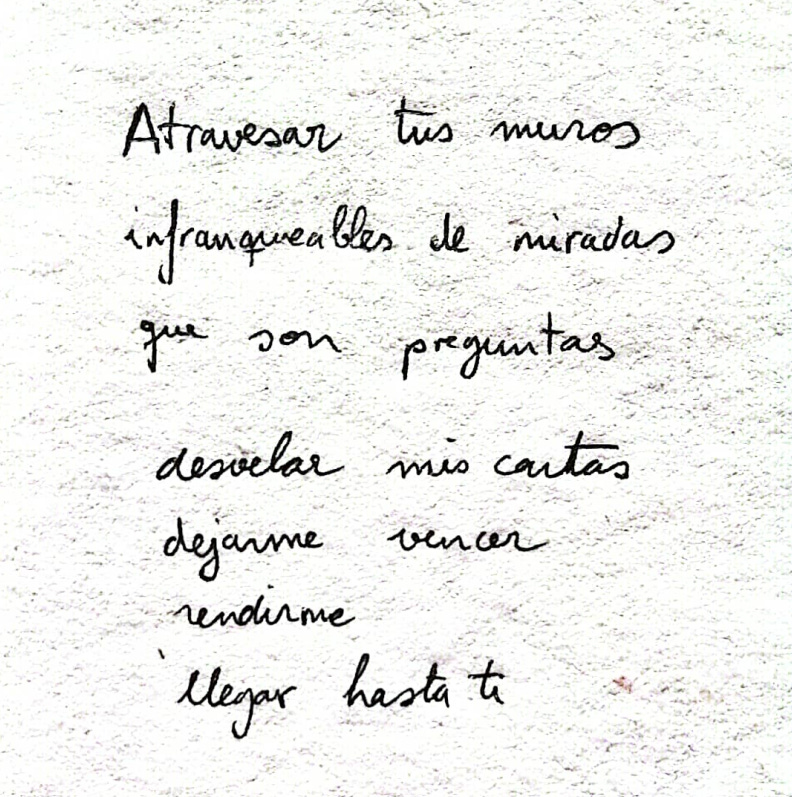 Atravesar tus muros
infranqueables de miradas
que son preguntas
desvelar mis cartas
dejarme vencer
rendirme
llegar hasta ti